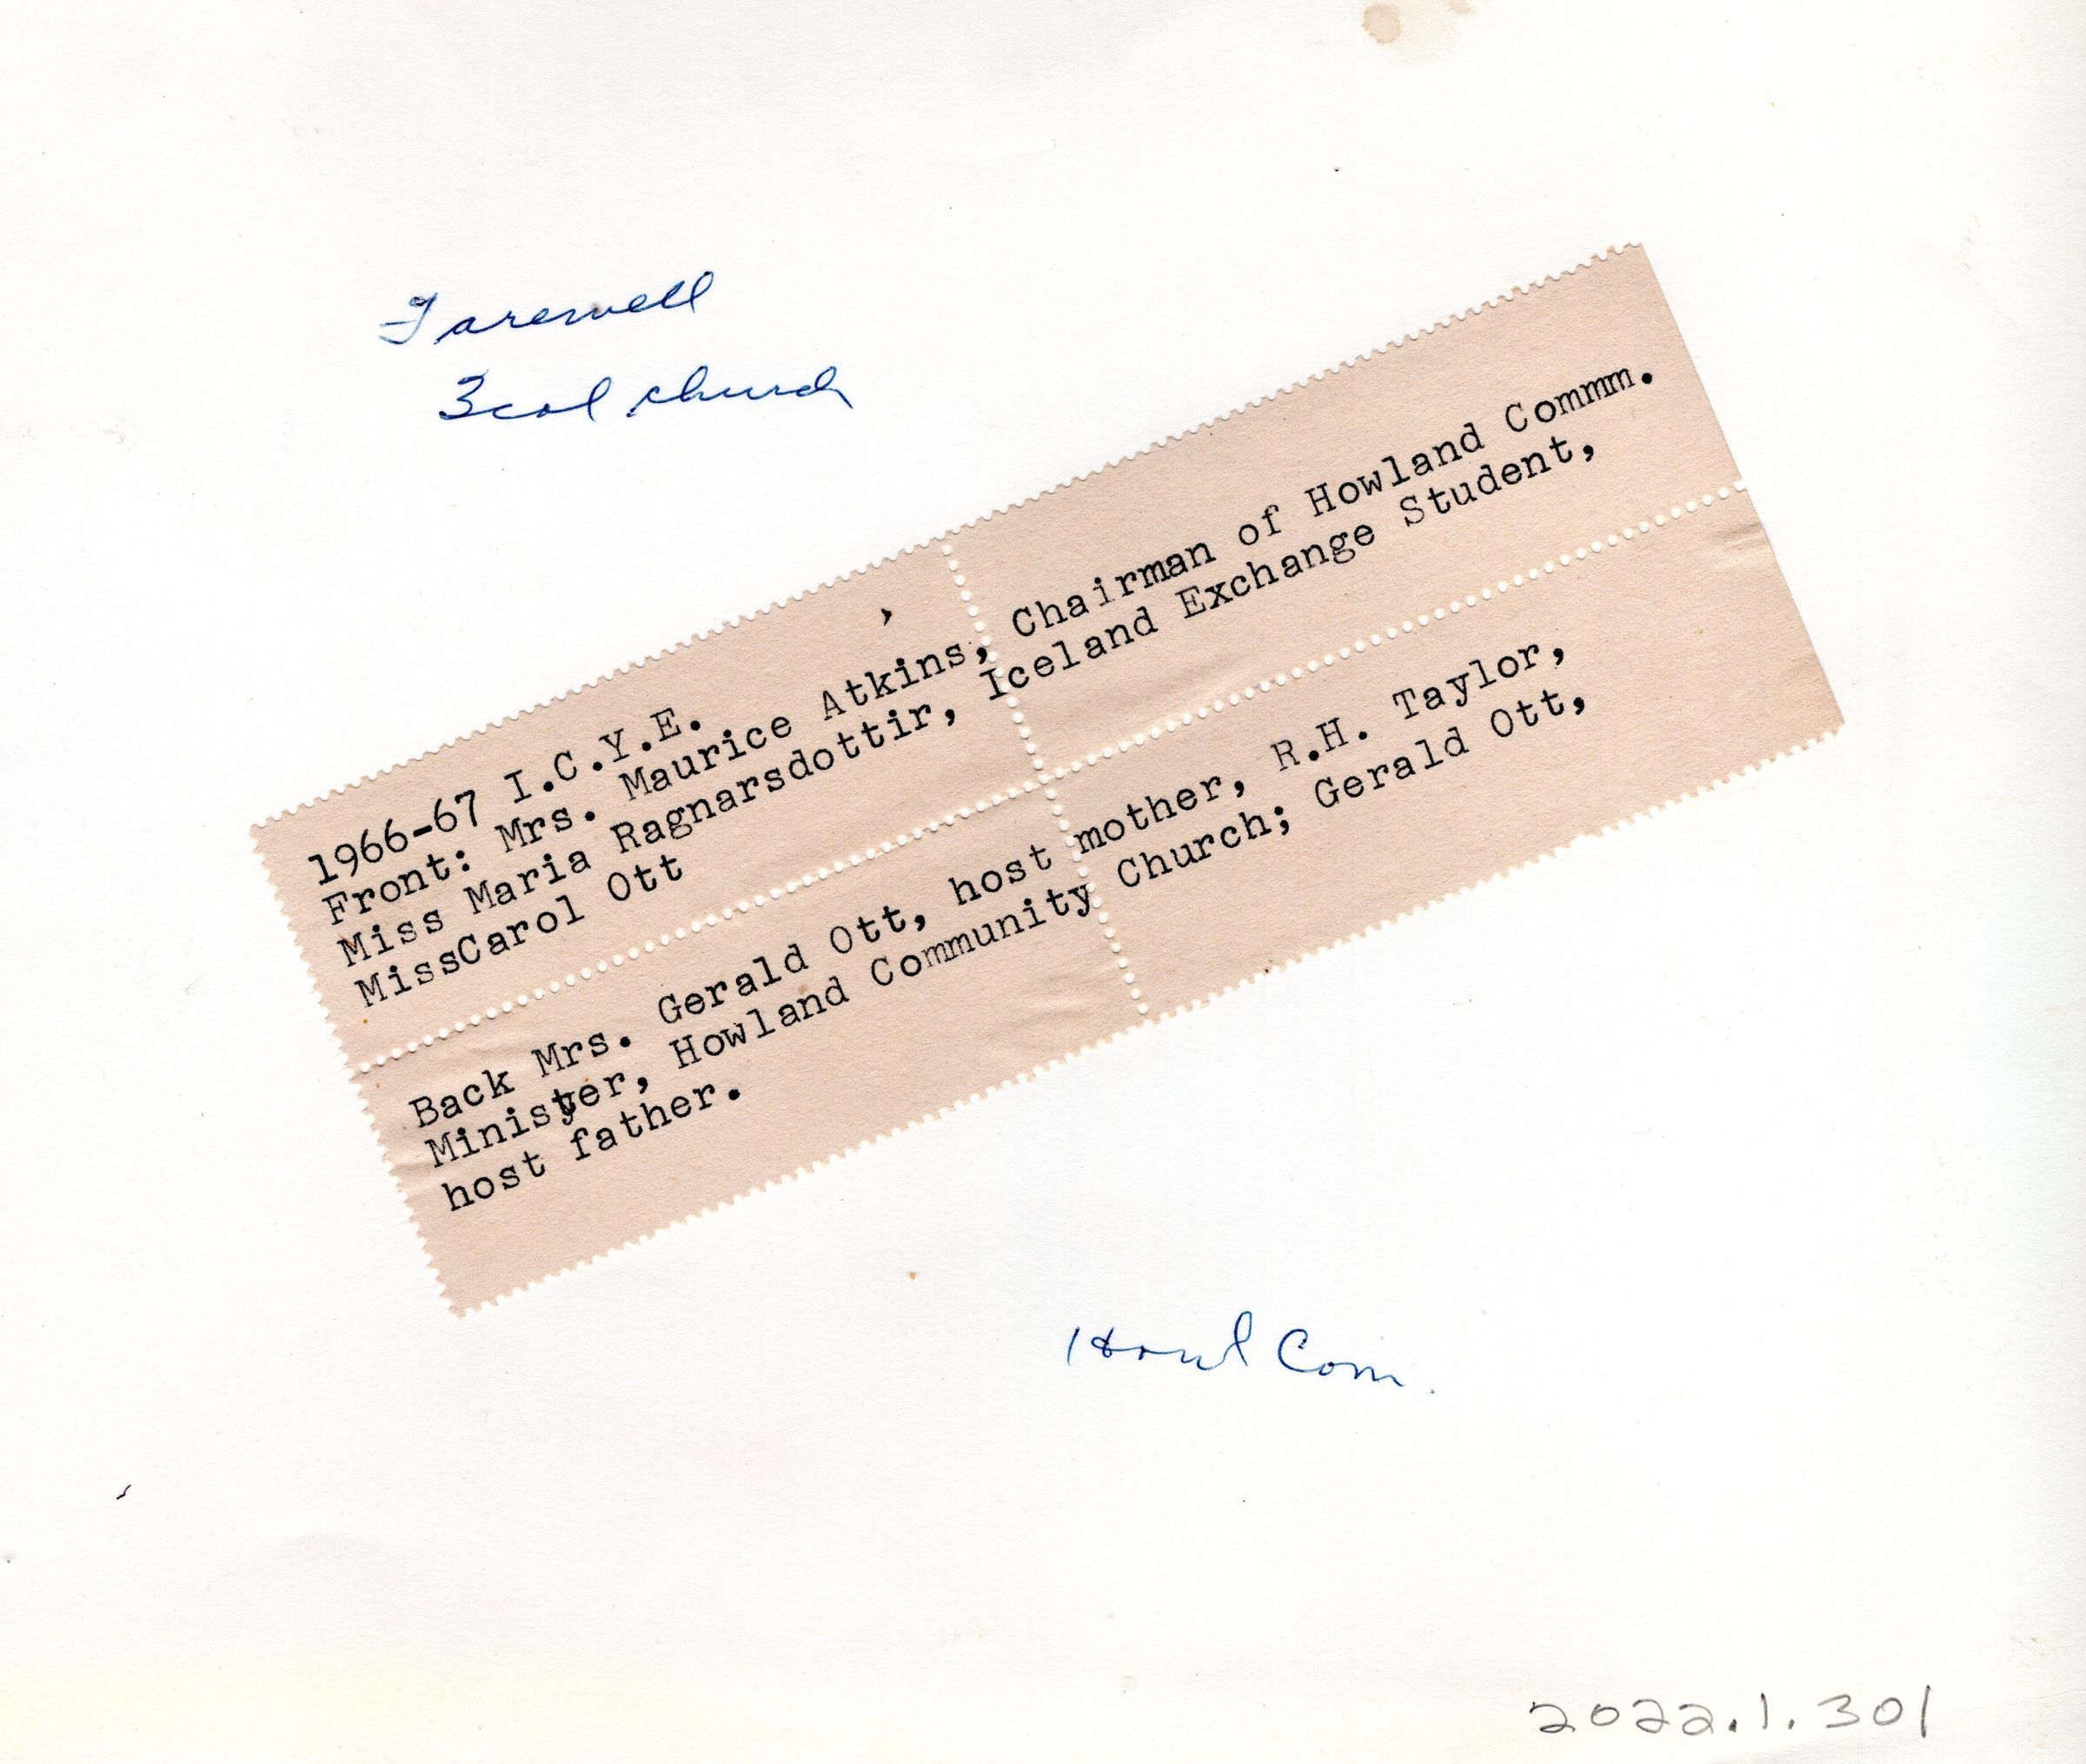 Farewell
3 col church
1966-67 I.C.Y.E.
Front: Mrs. Maurice Atkins, Chairman of Howland Commm.
Miss Maria Ragnarsdottir, Iceland Exchange Student,
MissCarol Ott
Back Mrs. Gerald Ott, host mother, R.H. Taylor,
Minister, Howland Community Church; Gerald Ott,
host father.
Howl Com.
2022.1.301